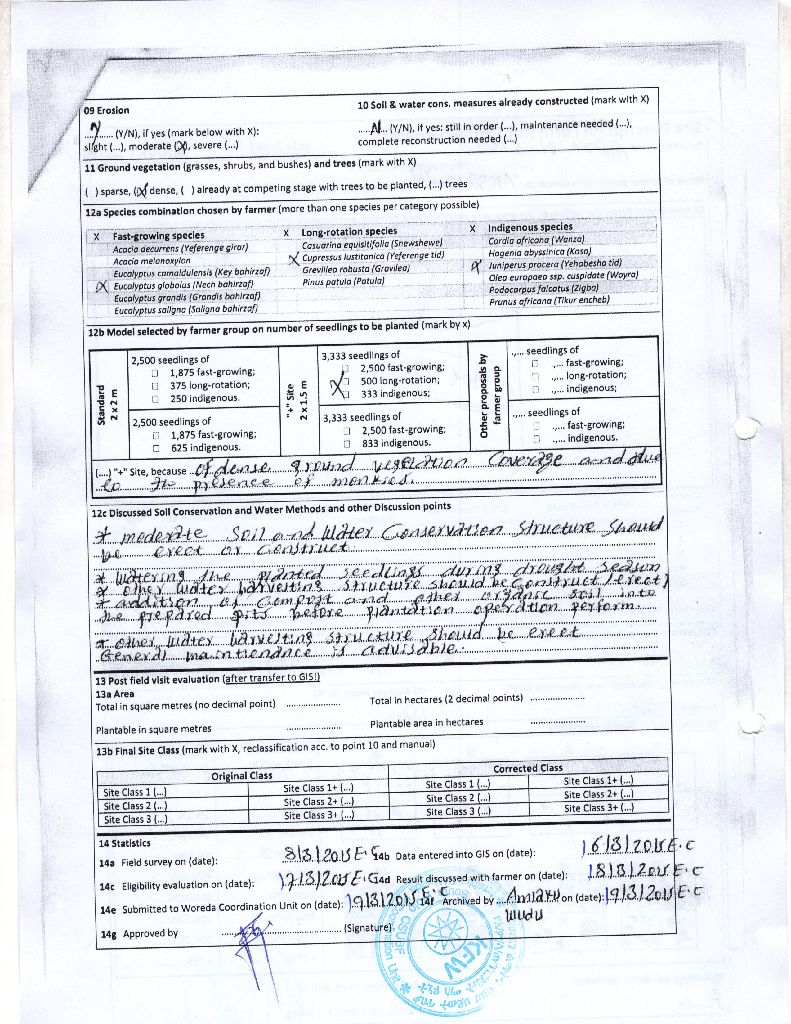 09 Erosion
10 Soil & water cons. measures already constructed (mark with X)
..Y.... (Y/N), if yes (mark below with X):
....N... (Y/N), if yes: still in order (...), maintenance needed (...),
slight (...), moderate (X), severe (...)
complete reconstruction needed (...)
11 Ground vegetation (grasses, shrubs, and bushes) and trees (mark with X)
( ) sparse, (X) dense, ( ) already at competing stage with trees to be planted, (...) trees
12a Species combination chosen by farmer (more than one species per category possible)
X Fast-growing species
Acacia decurrens (Yeferenge girar)
Acacia melanoxylon
Eucalyptus camaldulensis (Key bahirzaf)
X Eucalyptus globolus (Nech bahirzaf)
Eucalyptus grandis (Grandis bahirzaf)
Eucalyptus saligna (Saligna bahirzaf)
X Long-rotation species
Casuarina equisitifolia (Snewshewe)
X Cupressus lustitanica (Yeferenge tid)
Grevillea robusta (Gravilea)
Pinus patula (Patula)
X Indigenous species
Cordia africana (Wanza)
Hagenia abyssinica (Koso)
X Juniperus procera (Yehabesha tid)
Olea europaea ssp. cuspidate (Woyra)
Podocarpus falcatus (Zigba)
Prunus africana (Tikur encheb)
12b Model selected by farmer group on number of seedlings to be planted (mark by x)
Standard
2 x 2 m
2,500 seedlings of
1,875 fast-growing;
375 long-rotation;
250 indigenous.
2,500 seedlings of
1,875 fast-growing;
625 indigenous.
"+" Site
2 x 1.5 m
3,333 seedlings of
2,500 fast-growing;
X 500 long-rotation;
333 indigenous;
3,333 seedlings of
2,500 fast-growing;
833 indigenous.
Other proposals by
farmer group
.,... seedlings of
.,... fast-growing;
.,... long-rotation;
.,... indigenous;
.,... seedlings of
.,... fast-growing;
.,... indigenous.
(....) "+" Site, because ..of dense ground vegetation Coverage and due
to the presence of monkies.
12c Discussed Soil Conservation and Water Methods and other Discussion points
* moderate Soil and Water Conservation Structure should
be erect or Construct
* Watering the planted seedlings during drought season
* other Water harvesting structure should be Construct (erect)
* addition of Compost and other organic soil into
the prepared pits before plantation operation perform.
* other Water harvesting structure should be erect
General maintiendance is advisable.
13 Post field visit evaluation (after transfer to GIS!)
13a Area
Total in square metres (no decimal point) ..................
Total in hectares (2 decimal points) ..................
Plantable in square metres ..................
Plantable area in hectares ..................
13b Final Site Class (mark with X, reclassification acc. to point 10 and manual)
Original Class
Corrected Class
Site Class 1 (...) Site Class 1+ (...) Site Class 1 (...) Site Class 1+ (...)
Site Class 2 (...) Site Class 2+ (...) Site Class 2 (...) Site Class 2+ (...)
Site Class 3 (...) Site Class 3+ (...) Site Class 3 (...) Site Class 3+ (...)
14 Statistics
14a Field survey on (date): 8/3/2015 E.C
14b Data entered into GIS on (date): 16/3/2015 E.C
14c Eligibility evaluation on (date): 17/3/2015 E.C
14d Result discussed with farmer on (date): 18/3/2015 E.C
14e Submitted to Woreda Coordination Unit on (date): 19/3/2015 E.C
14f Archived by .... on (date): 19/3/2015 E.C
Wudu
14g Approved by .................. (Signature)
KFW